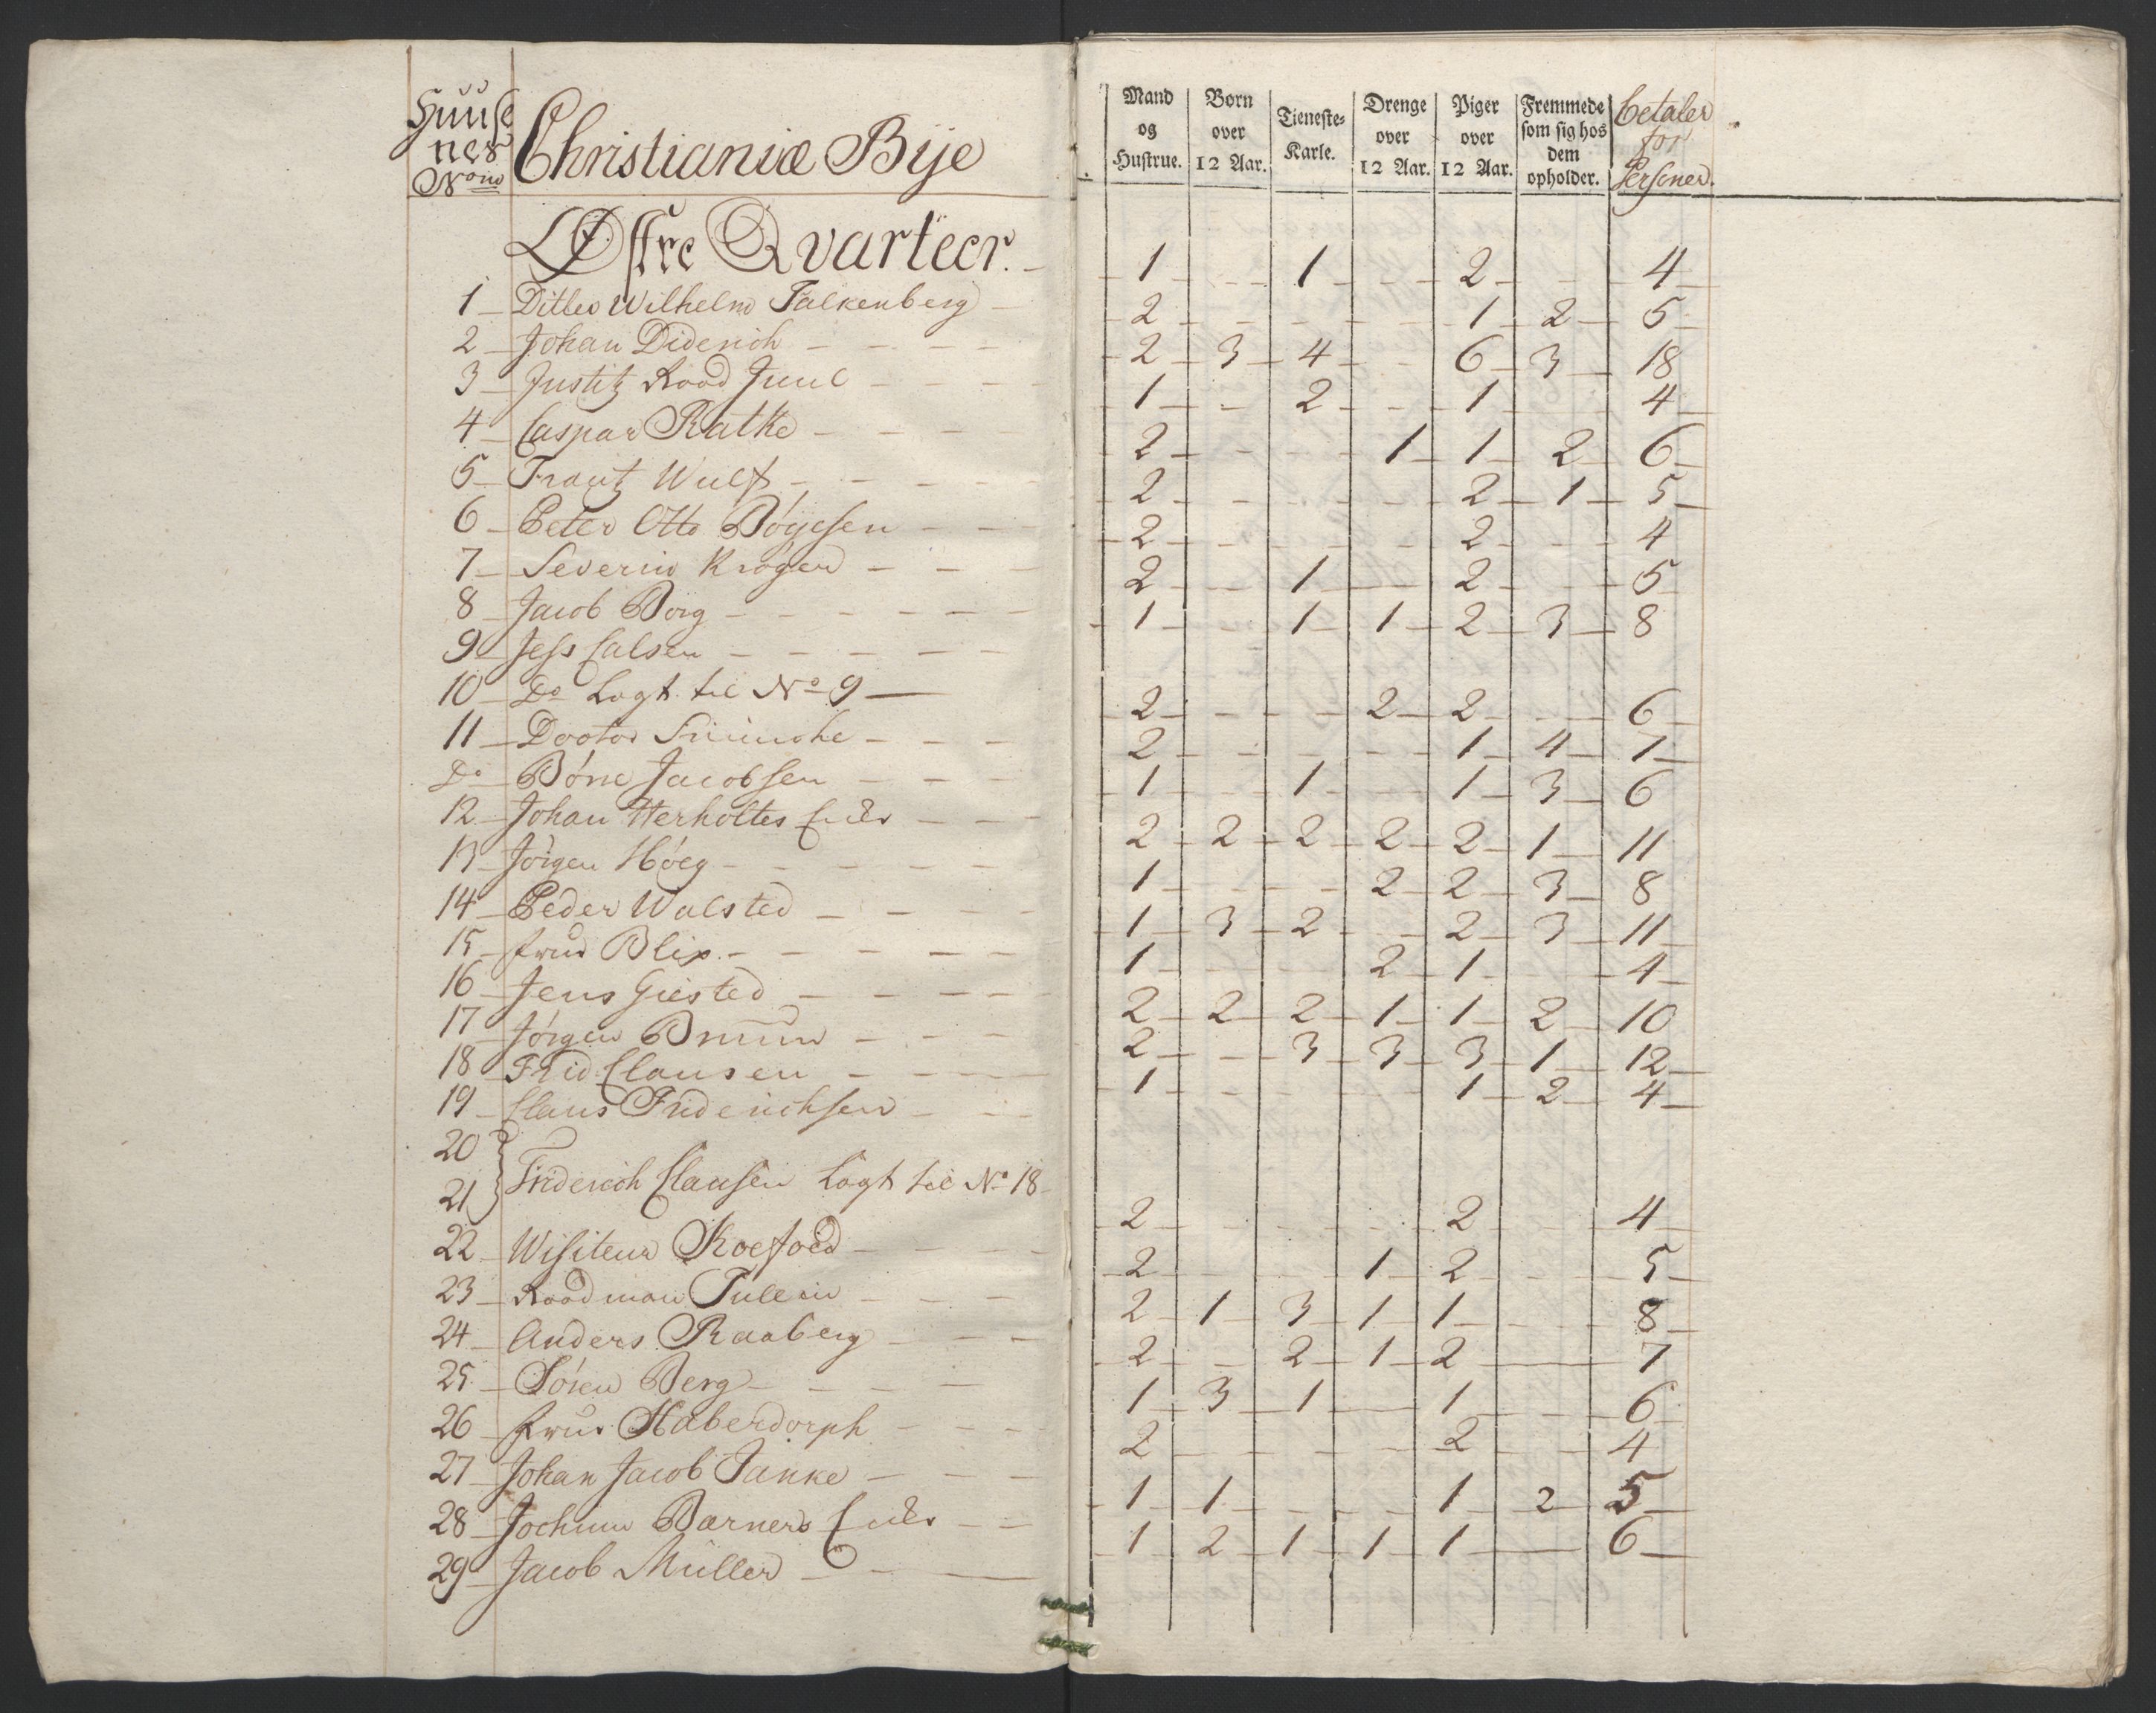 Huuse
nes
No
Christianiæ Bye
Mand og Hustrue. | Born over 12 Aar. | Tieneste-Karle. | Drenge over 12 Aar. | Piger over 12 Aar. | Fremmede som sig hos dem opholder. | betaler for Personer.
Østre Qvarteer.
1 Ditlev Wilhelm Falkenberg 1 - 1 - 2 - 4
2 Johan Diderich 2 - - - 1 2 5
3 Justitz Raad Juul 2 3 4 - 6 3 18
4 Caspar Ratke 1 - 2 - 1 - 4
5 Frantz Wulf 2 - - 1 1 2 6
6 Peter Otto Bøyesen 2 - - - 2 1 5
7 Severin Krøger 2 - - - 2 - 4
8 Jacob Borg 2 - 1 - 2 - 5
9 Jess Calsen 1 - 1 1 2 3 8
10 Do Lagt til No 9
11 Doctor 2 - - 2 2 - 6
Do Børre Jacobsen 2 - - - 1 4 7
12 Johan Herholtes Enke 1 - 1 - 1 3 6
13 Jørgen Høeg 2 2 2 2 2 1 11
14 Peder Walsted 1 - - 2 2 3 8
15 frue Blix 1 3 2 - 2 3 11
16 Jens Giested 1 - - 2 1 - 4
17 Jørgen Bruun 2 2 2 1 1 2 10
18 Frid Clausen 2 - 3 3 3 1 12
19 Claus Friderichsen 1 - - - 1 2 4
20
21 } Friderich Clausen Lagt til No 18
22 Visiteur Koefoed 2 - - - 2 - 4
23 Raadman Tullin 2 - - 1 2 - 5
24 Anders Raaberg 2 1 3 1 1 - 8
25 Søren Berg 2 - 2 1 2 - 7
26 frue Haberdorph 1 3 1 - 1 - 6
27 Johan Jacob Janke 2 - - - 2 - 4
28 Jochum Barners Enke 1 1 - - 1 2 5
29 Jacob Müller 1 2 1 1 1 - 6